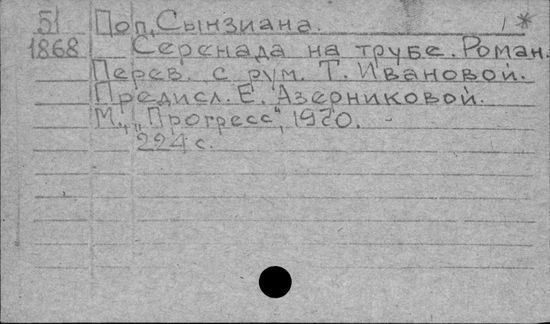 51 Поп, Сынзиана. 1*
1868 Серенада на трубе. Роман.
Перев. с рум. Т. Ивановой.
Предисл. Е. Азерниковой.
М., "Прогресс", 1970.
224 с.